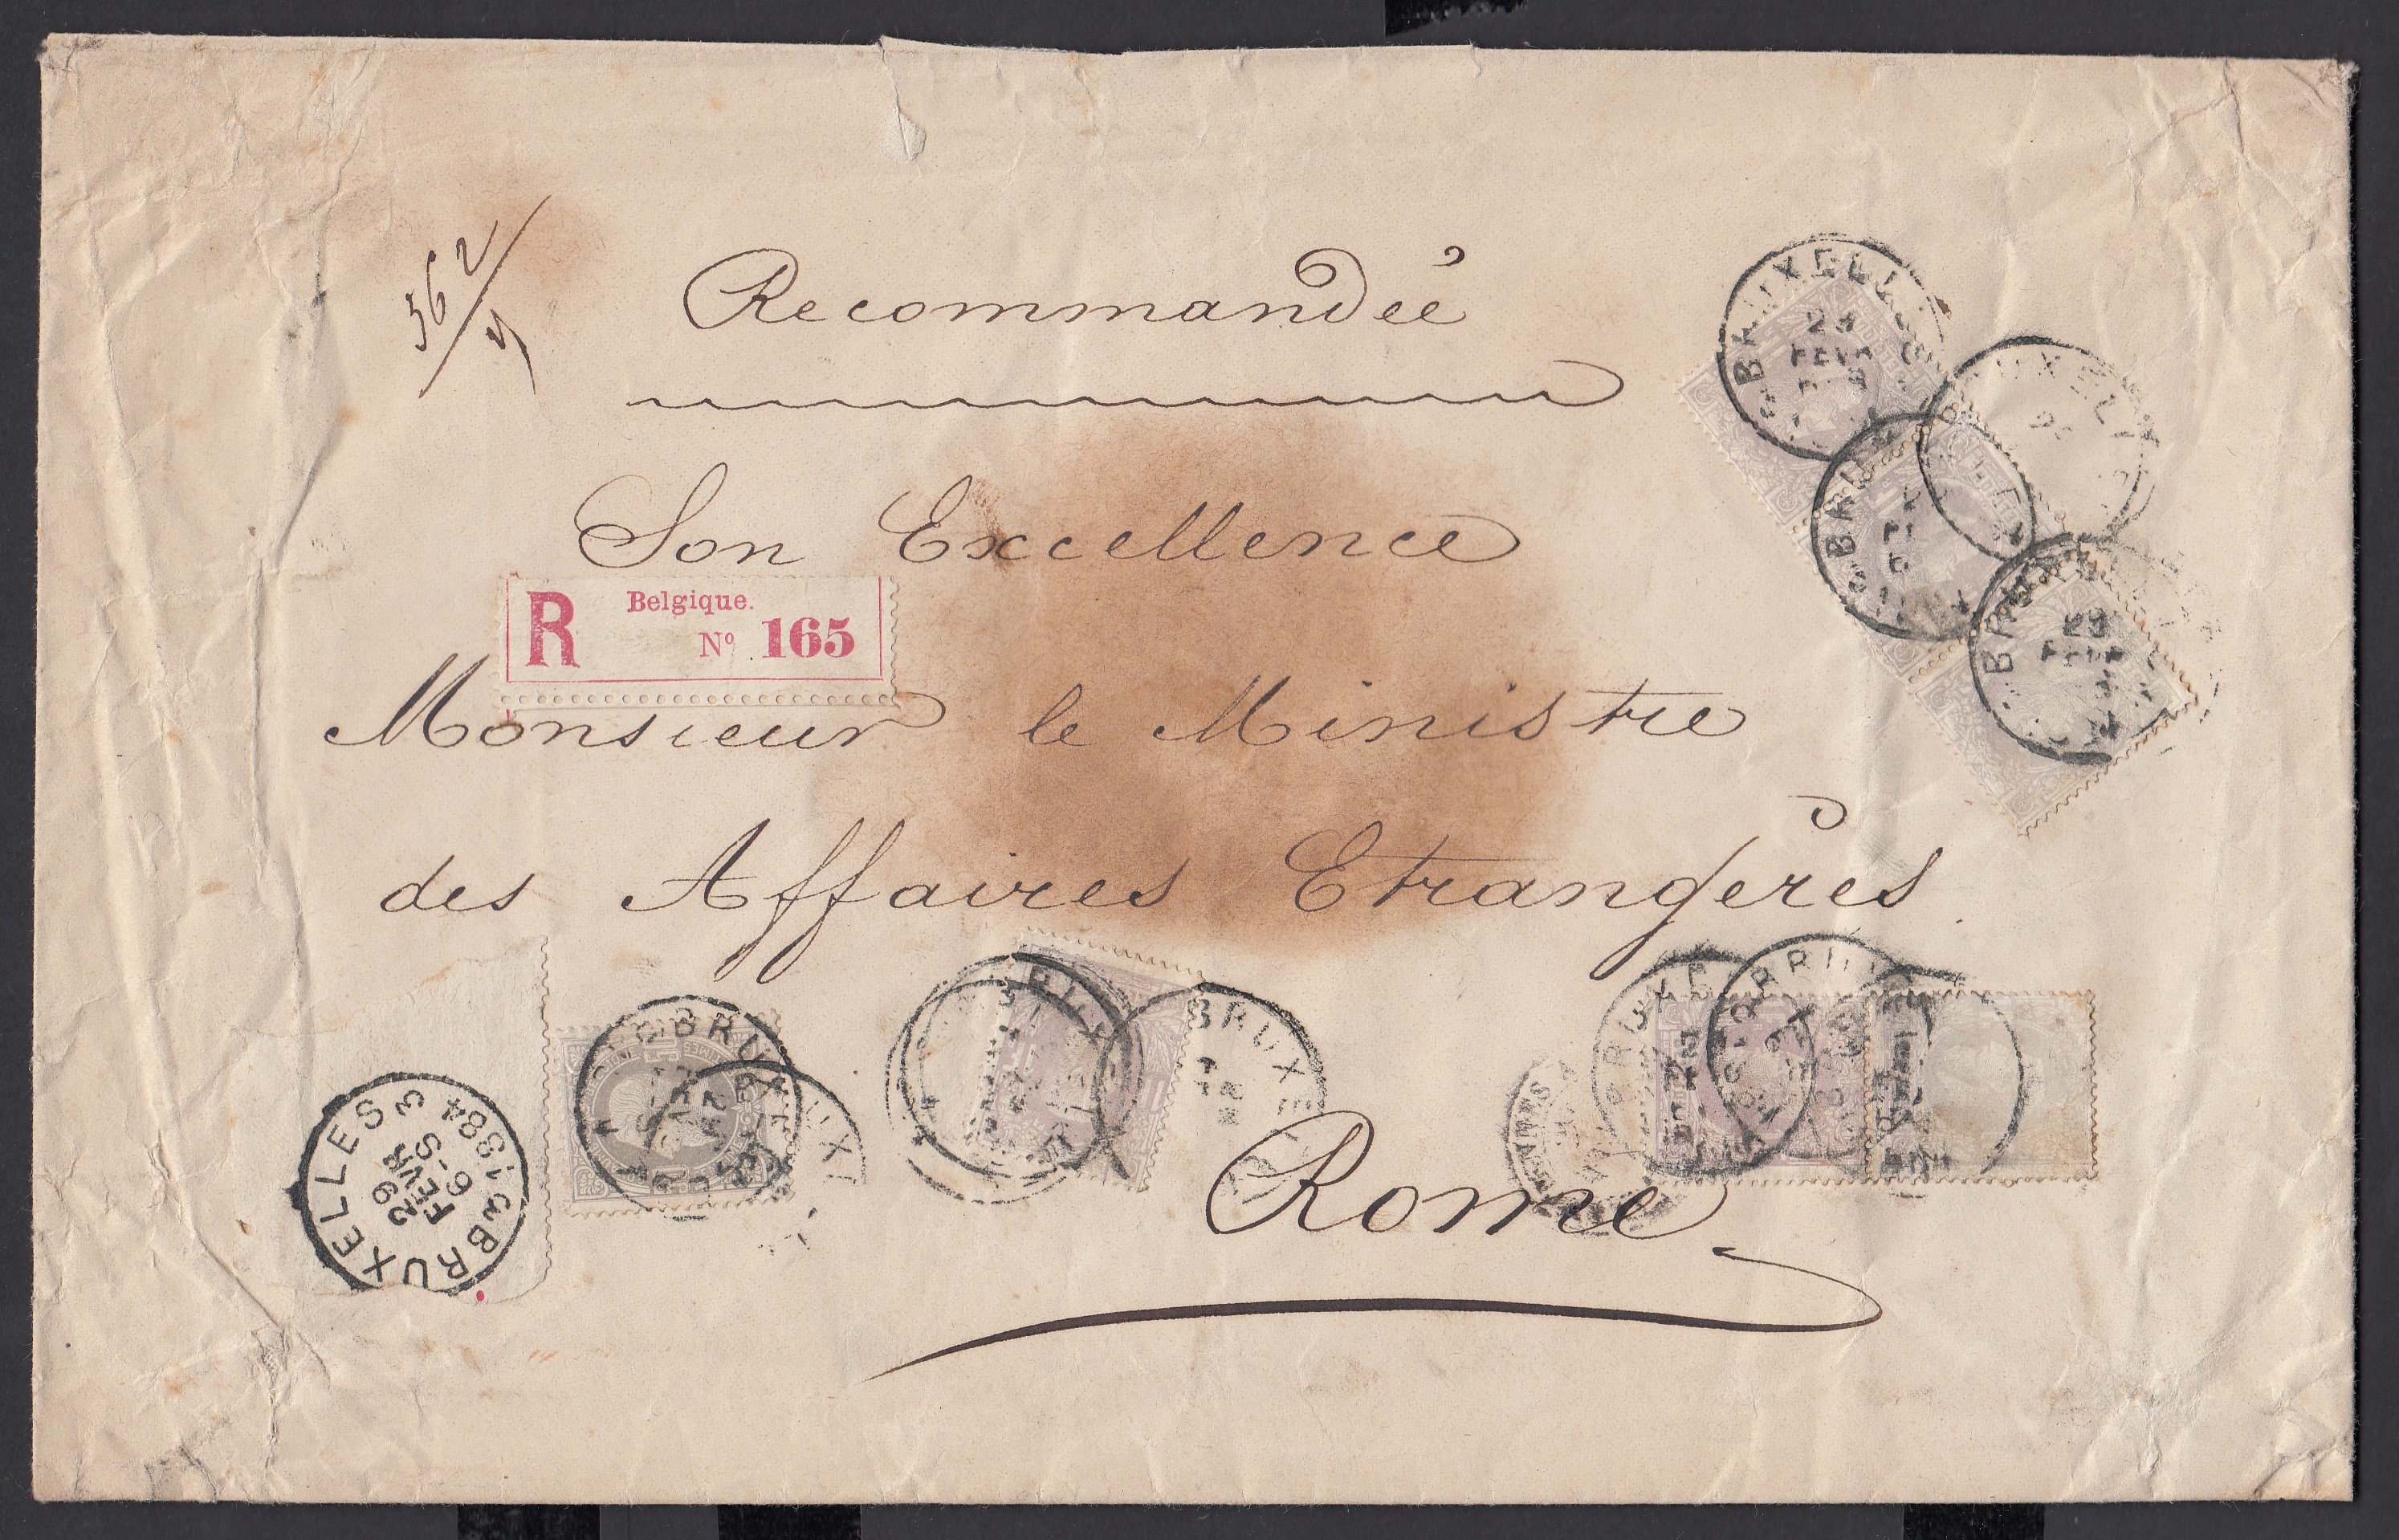 562/4
Recommandée
Son Excellence
R Belgique.
Nº 165
Monsieur le Ministre
des Affaires Etrangères
Rome
BRUXELLES 3
29
FEVR
6-S
1884
BRUXELLES
FEVR
BRUX
BRUXE